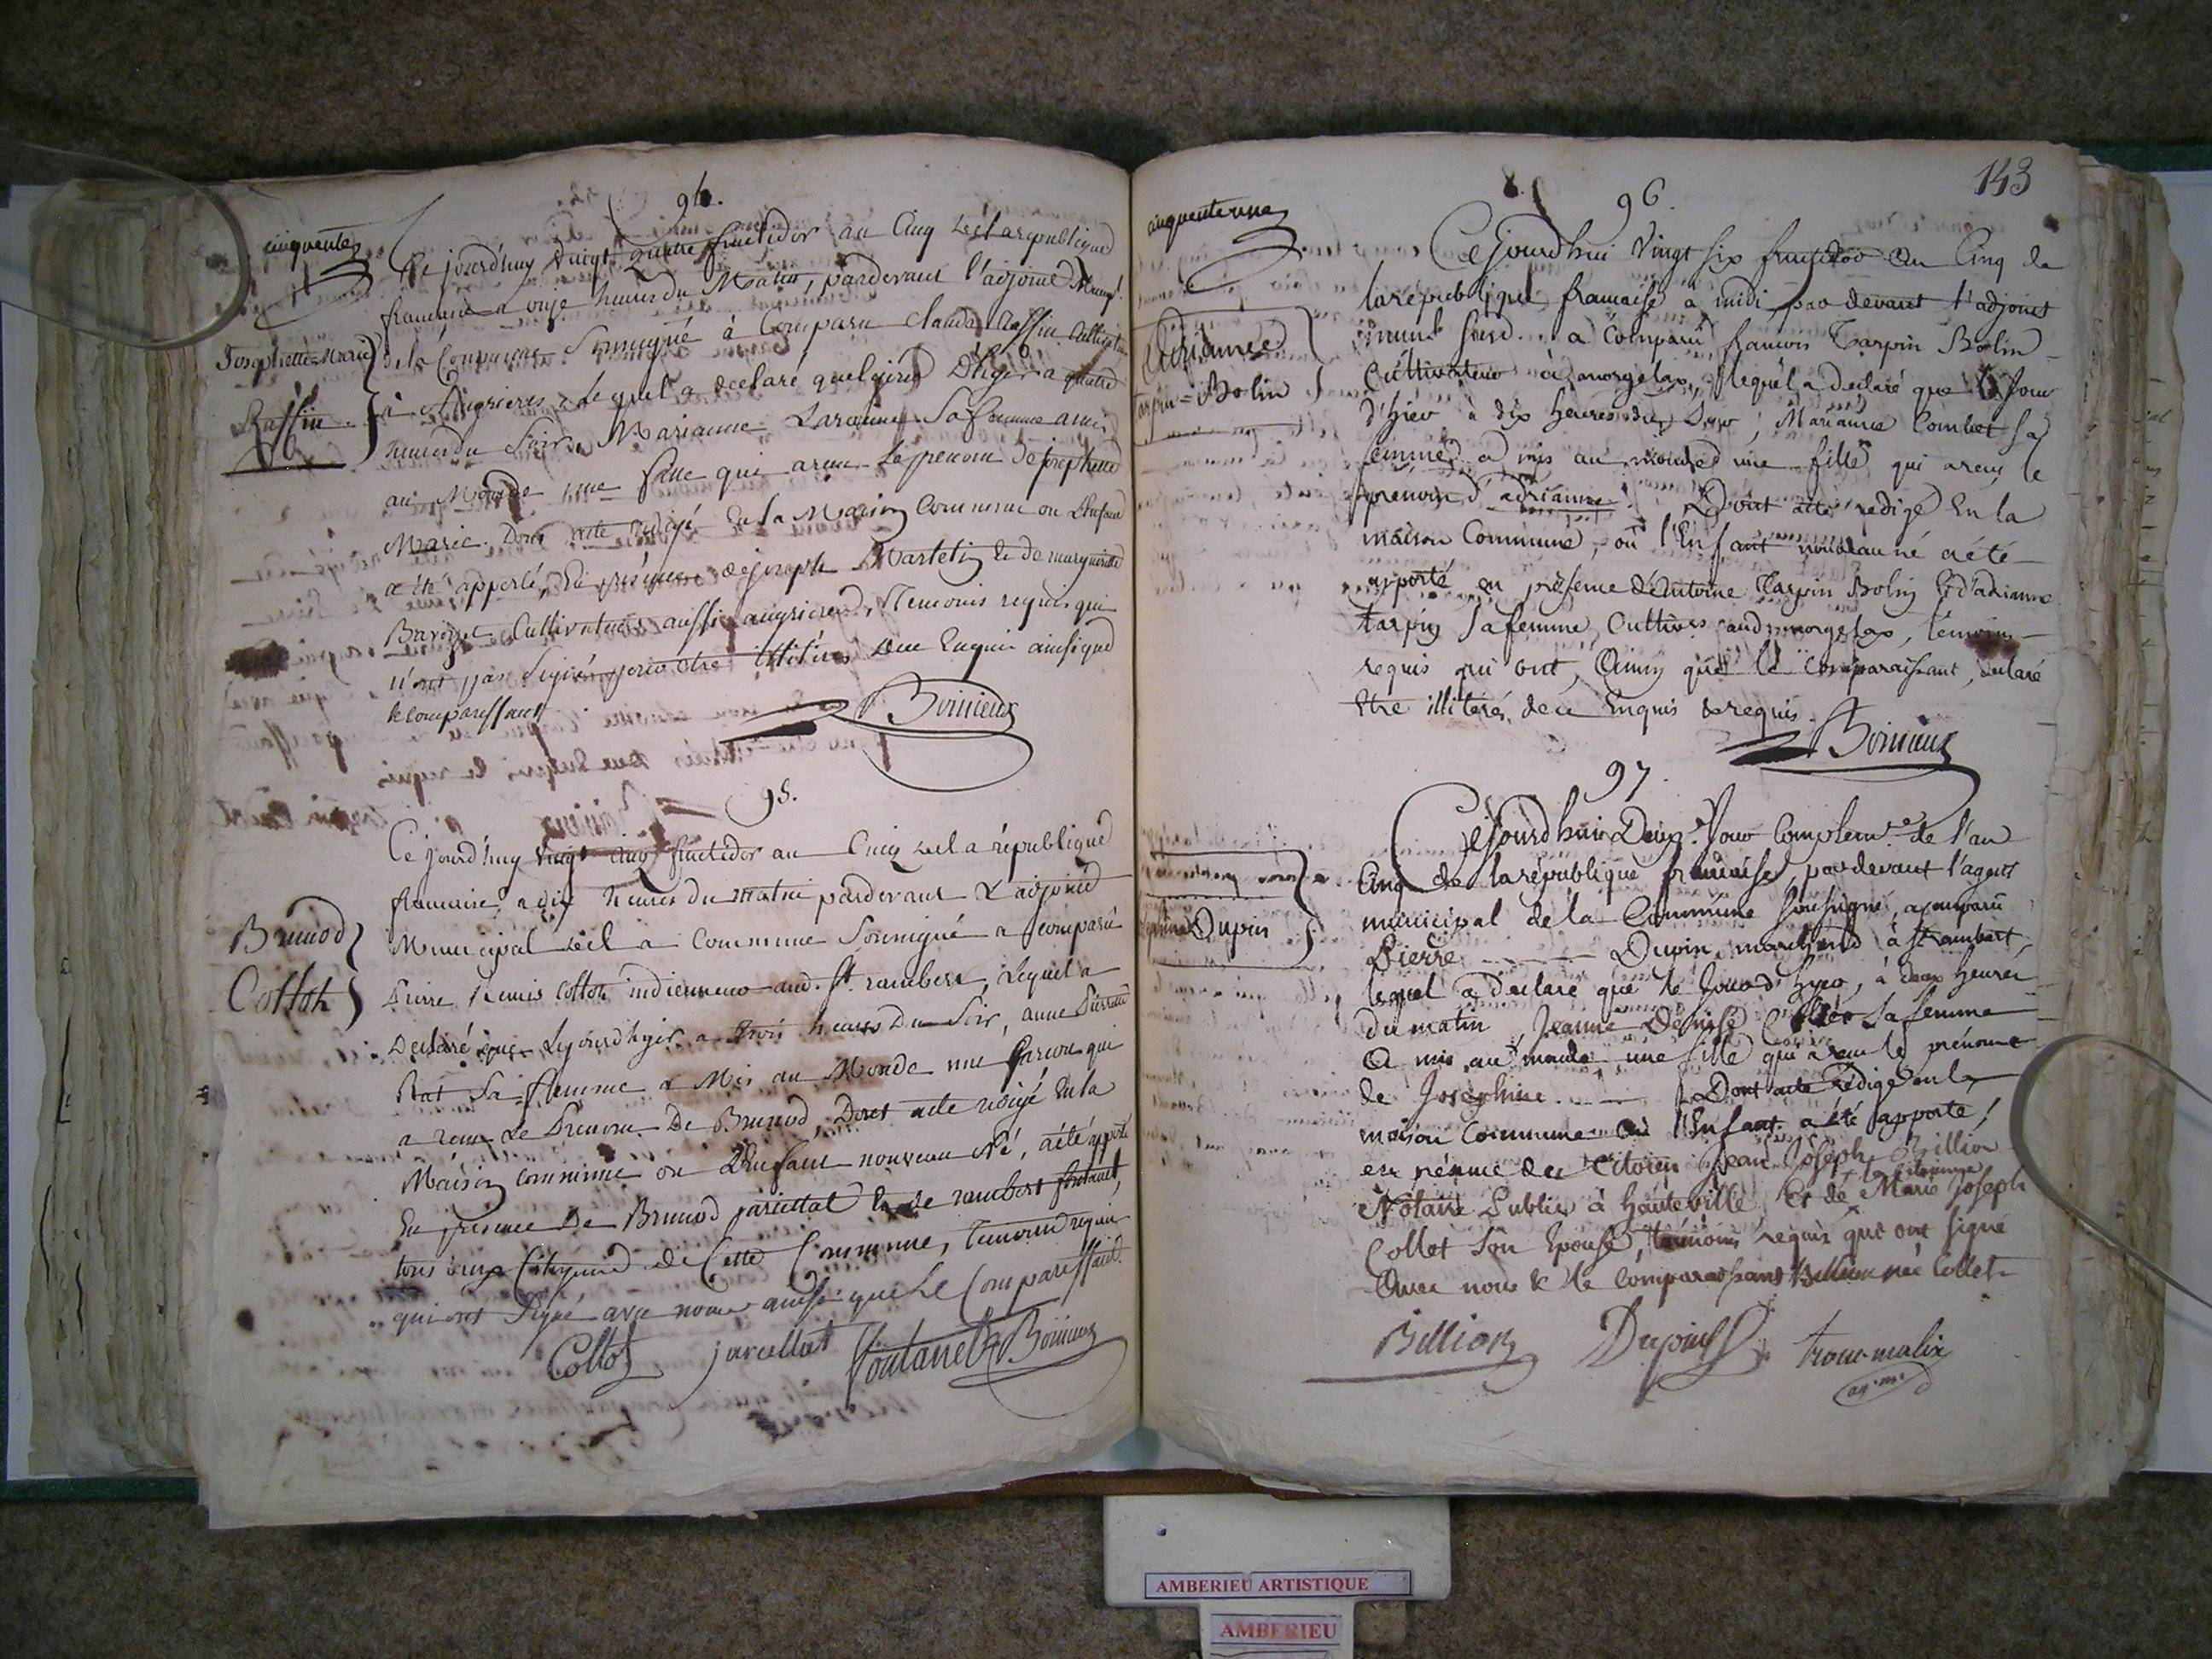 94.
cinquante
Ce jourd'huy vingt quatre fructidor an Cinq de la republique
francaise a onze heures du Matin, pardevant l'adjoint Munipl.
Josephette=Marie
de la Commune Soussigné à Comparu claude Raffin Cultivateur
Raffin
à Angrieres, Lequel a declaré que hier a quatre
heures du Soir, Marianne Sa femme a mis
au Monde une fille qui a recu le prenom de josephette
Marie. Dont acte redigé En la Maison Commune ou L'enfant
a été apporté, En présence de joseph Martelin & de margueritte
Cultivateurs aussi Temoins requis qui
n'ont pas Signé pour etre illitérés de ce Enquis ainsi que
le comparissant
Bonieux
95.
Ce jourd'huy vingt cinq fructidor an Cinq de la république
francaise, a dix heures du matin pardevant L'adjoint
Brunod
Municipal de la Commune Soussigné a comparu
Cottot
Pierre Remis Cottot indienneur aud. St. rambert, Lequel a
Declaré que Le jourd'hyer a trois heures Du Soir, anne Pierrette
Stat Sa femme a Mis au Monde un Garcon qui
a recu Le Prenom De Brunod, Dont acte redigé En la
Maison commune ou L'Enfant nouveau Né, a été apporté
En presence De Brunod jarcellat & de rambert fontanel,
tous deux Citoyens de Cette Commune, Temoins requis
qui ont Signé avec nous ainsi que Le Comparissant.
Cottot jarcellat Fontanel Bonieux
143
96.
cinquante une
Ce jourd'hui vingt six fructidor an Cinq de
la republique francaise a midi par devant l'adjoint
Adrianne
munl. sousd. a Comparu francois Tarpin Bolin
Tarpin=Bolin
Cultivateur à morgelas, lequel a declaré que le jour
d'hier à dix heures du Soir, Marianne Combet sa
femme a mis au monde une fille qui a recu le
prenom d'adrianne. Dont acte redigé En la
maison Commune, où l'Enfant nouveau né a été
apporté en présence d'Antoine Tarpin Bolin & d'adrianne
tarpin sa femme, Cultivrs aud. morgelas, témoins
requis qui ont, Ainsy que le comparaissant, declaré
Etre illitérés, de ce Enquis & requis.
Bonieux
97.
Ce jourd'hui Deux.e Jour Complemre. de l'an
Cinq de la république francaise, par devant l'agent
municipal de la Commune soussigné, a comparu
Dupin
Pierre Dupin marchand à St. rambert,
lequel a declaré que le Jour d'hyer, à deux heures
du matin, Jeanne Denise Collet Sa femme
a mis au monde une fille qui a recu le prénome
de Josephine. Dont acte Rédigé en la
maison Commune où l'Enfant a été apporté,
en présence du Citoien Jean Joseph Billion
Notaire Public à hauteville, & de la citoienne Marie Joseph
Collet son Epouse, témoins requis qui ont signé
Avec nous & le comparaissant Billion née Collet
Billion Dupin trocu-malix
ag. m.
AMBERIEU ARTISTIQUE
AMBERIEU